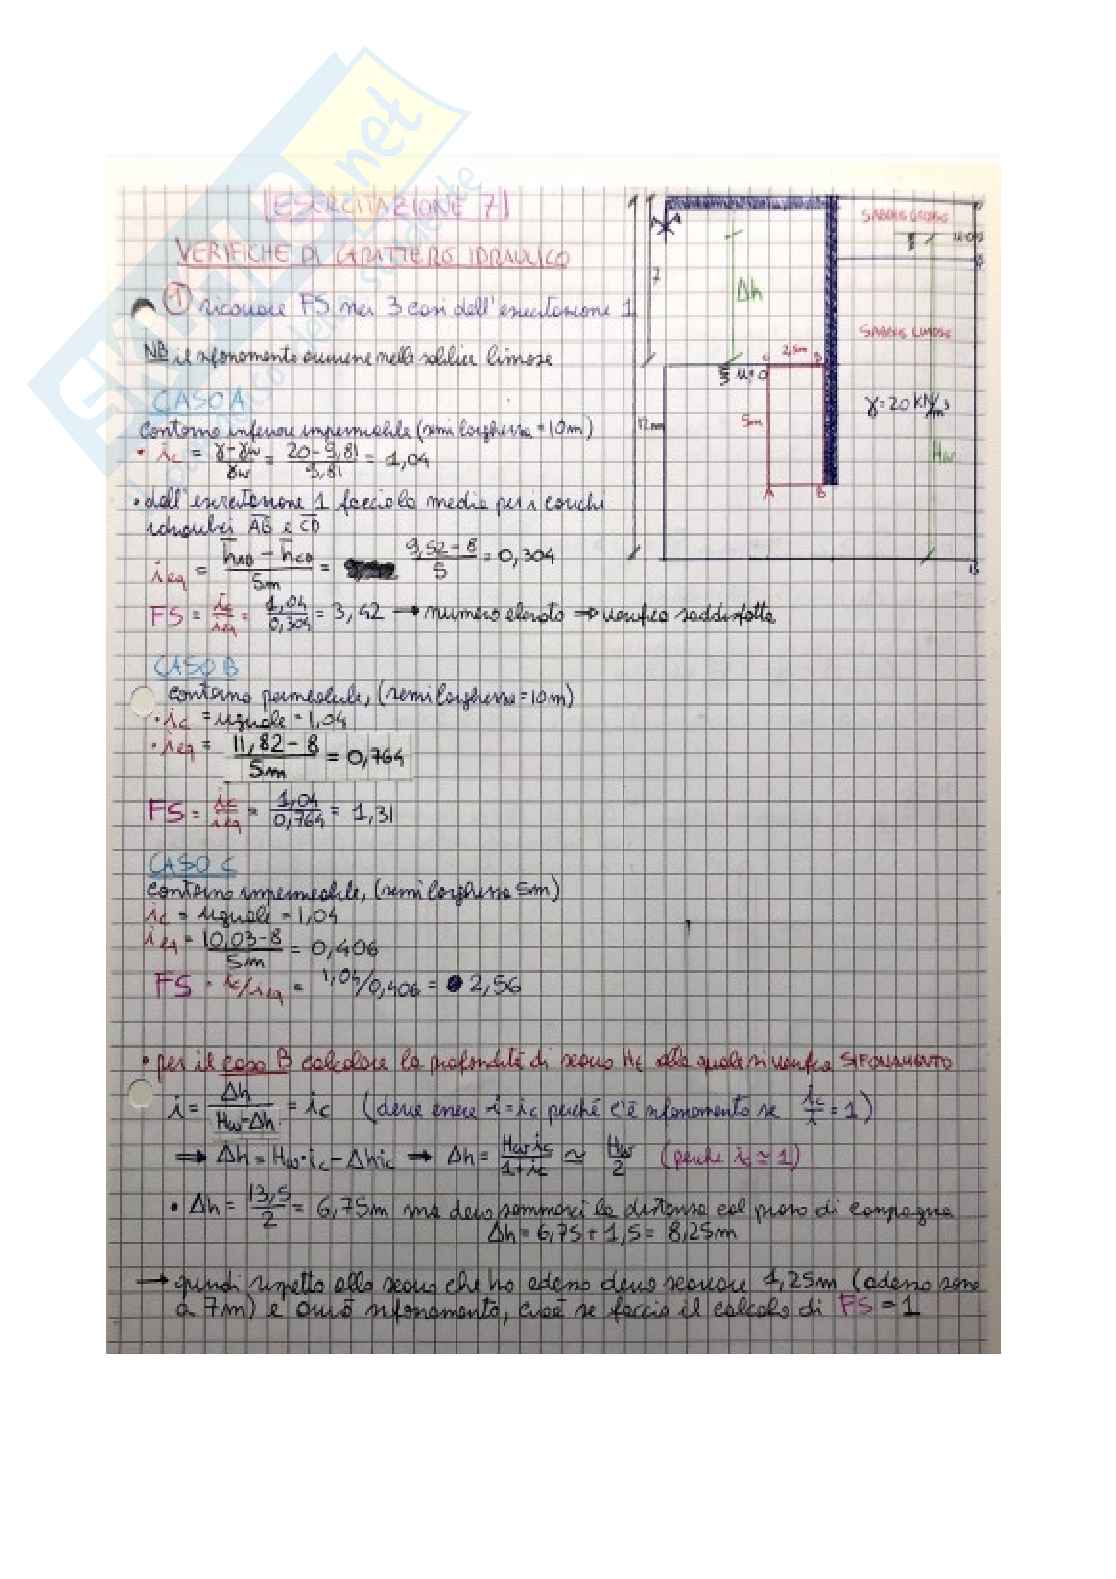 ESERCITAZIONE 7
VERIFICHE DI CARATTERE IDRAULICO
① ricavare FS nei 3 casi dell'esercitazione 1
NB il sifonamento avviene nella sabbia limosa
CASO A
contorno inferiore impermeabile (semi larghezza = 10m)
• ic = γ-γw / γw = 20-9,81 / 9,81 = 1,04
• dall'esercitazione 1 faccio la media per i carichi
idraulici AB e CD
ieq = hAB - hCD / 5m = 9,52-8 / 5 = 0,304
FS = ic/ieq = 1,04/0,304 = 3,42 → numero elevato → verifica soddisfatta
CASO B
contorno permeabile, (semi larghezza = 10m)
• ic = uguale = 1,04
• ieq = 11,82-8 / 5m = 0,764
FS = ic/ieq = 1,04/0,764 = 1,31
CASO C
contorno impermeabile, (semi larghezza 5m)
ic = uguale = 1,04
ieq = 10,03-8 / 5m = 0,406
FS = ic/ieq = 1,04/0,406 = 2,56
• per il caso B calcolare la profondità di scavo Hc alla quale si verifica SIFONAMENTO
i = Δh / Hw-Δh = ic (deve essere i=ic perché c'è sifonamento se ic/i = 1)
⇒ Δh = Hw·ic - Δhic → Δh = Hwic / 1+ic ≃ Hw/2 (perché ic ≃ 1)
• Δh = 13,5/2 = 6,75m ma devo sommarci la distanza col piano di campagna
Δh = 6,75 + 1,5 = 8,25m
→ quindi rispetto allo scavo che ho adesso devo scavare 1,25m (adesso sono
a 7m) e avrò sifonamento, cioè se faccio il calcolo di FS = 1
SABBIA GROSSA
u=0
7
Δh
SABBIA LIMOSA
2,5m
C
D
u=0
γ=20 KN/m³
12m
5m
Hw
A
B
SKUOLA.net